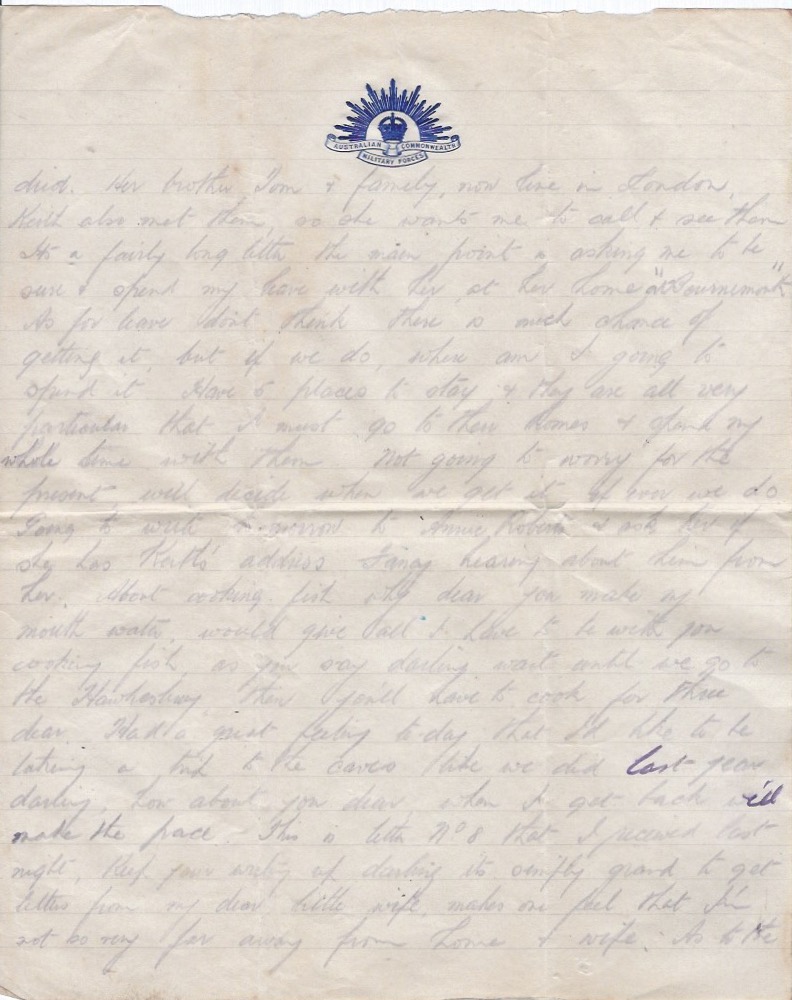 AUSTRALIAN COMMONWEALTH
MILITARY FORCES
died. Her brother Tom & family, now live in London,
Keith also met them, so she wants me to call & see them
Its a fairly long letter the main point is asking me to be
sure & spend my leave with her, at her home "at Bournemouth"
As for leave dont think there is much chance of
getting it, but if we do, where am I going to
spend it. Have 5 places to stay & they are all very
particular that I must go to their homes & spend my
whole time with them. Not going to worry for the
present, will decide when we get it if ever we do
Going to write tomorrow to Annie Roberts & ask her if
she has Keith's address Fancy hearing about him from
her. About cooking fish why dear you make my
mouth water, would give all I have to be with you
cooking fish, as you say darling wait until we go to
the Hawkesbury then you'll have to cook for three
dear. Had a great feeling to-day that I'd like to be
taking a trip to the caves like we did last year
darling, how about you dear, when I get back will
make the pace. This is letter No 8 that I received last
night, Keep your writing up darling its simply grand to get
letters from my dear little wife, makes one feel that I'm
not so very far away from home & wife. As to the